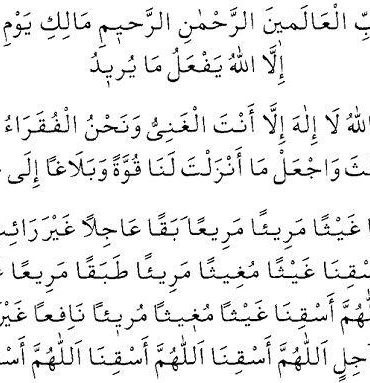 بِّ الْعَالَمينَ الرَّحْمٰنِ الرَّحيمِ مَالِكِ يَوْمِ
إِلَّا اللهُ يَفْعَلُ مَا يُريدُ
اللهُ لَا إِلٰهَ إِلَّا أَنْتَ الْغَنِىُّ وَنَحْنُ الْفُقَرَاءُ
وَاجْعَلْ مَا أَنْزَلْتَ لَنَا قُوَّةً وَبَلَاغًا إِلَى
غَيْثًا مَرِيئًا مَرِيعًا بَقًا عَاجِلًا غَيْرَ رَائِثٍ
غَيْثًا مُغِيثًا مَرِيئًا طَبَقًا مَرِيعًا
أَسْقِنَا غَيْثًا مُغِيثًا مُرِيئًا نَافِعًا غَيْرَ
اَللّٰهُمَّ أَسْقِنَا اَللّٰهُمَّ أَسْقِنَا اَللّٰهُمَّ